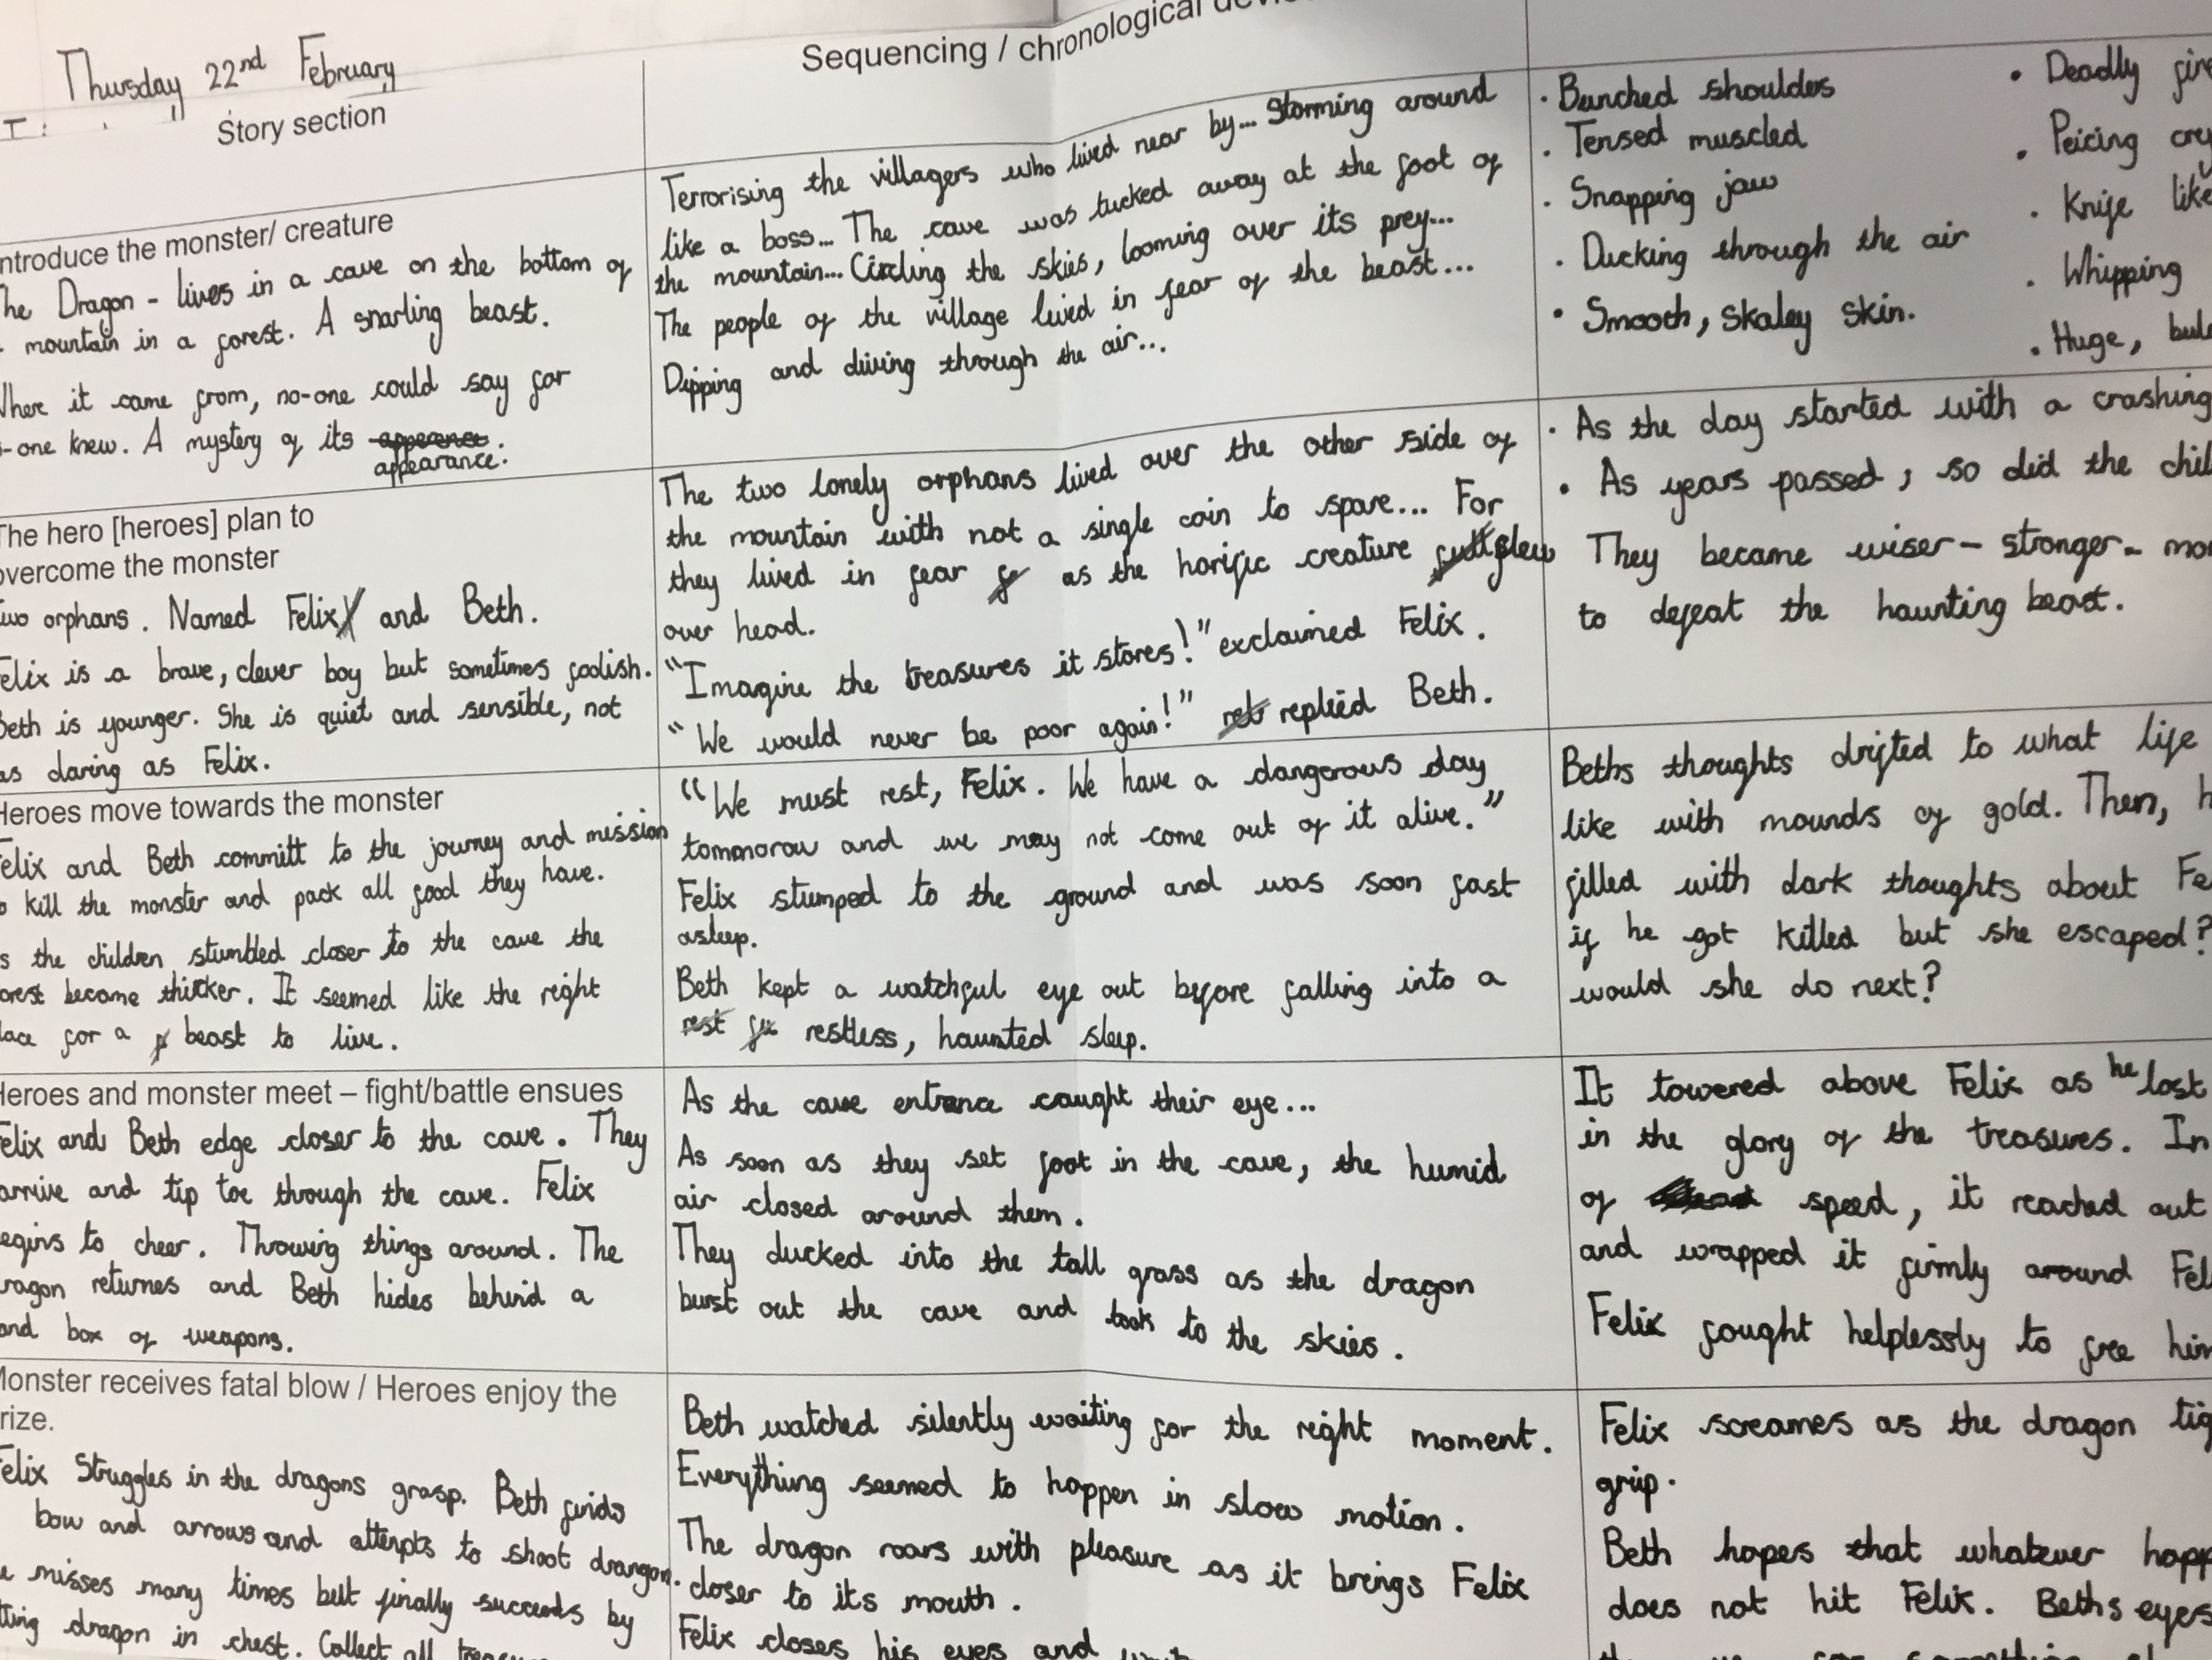 Thursday 22nd February
Story section
Sequencing / chronological
ntroduce the monster/ creature
he Dragon - lives in a cave on the bottom of
mountain in a forest. A snarling beast.
Where it came from, no-one could say for
-one knew. A mystery of its appearance.
appearance.
Terrorising the villagers who lived near by... Storming around
like a boss... The cave was tucked away at the foot of
the mountain... Circling the skies, looming over its prey...
The people of the village lived in fear of the beast...
Dipping and diving through the air...
• Bunched shoulders
• Tensed muscled
• Snapping jaw
• Ducking through the air
• Smooth, skaley skin.
• Deadly
• Peicing
• Knife like
• Whipping
• Huge,
The hero [heroes] plan to
overcome the monster
two orphans. Named Felix and Beth.
Felix is a brave, clever boy but sometimes foolish.
Beth is younger. She is quiet and sensible, not
as daring as Felix.
The two lonely orphans lived over the other side of
the mountain with not a single coin to spare... For
they lived in fear as the horific creature flew
over head.
"Imagine the treasures it stores!" exclaimed Felix.
"We would never be poor again!" replied Beth.
• As the day started with a crashing
• As years passed, so did the
They became wiser - stronger -
to defeat the haunting beast.
Heroes move towards the monster
Felix and Beth committ to the journey and mission
to kill the monster and pack all food they have.
s the children stumbled closer to the cave the
orest become thicker. It seemed like the right
lace for a beast to live.
"We must rest, Felix. We have a dangerous day
tomorow and we may not come out of it alive."
Felix stumped to the ground and was soon fast
asleep.
Beth kept a watchful eye out before falling into a
rest restless, haunted sleep.
Beths thoughts drifted to what life
like with mounds of gold. Then,
filled with dark thoughts about
if he got killed but she escaped?
would she do next?
Heroes and monster meet – fight/battle ensues
Felix and Beth edge closer to the cave. They
arrive and tip toe through the cave. Felix
egins to cheer. Throwing things around. The
ragon returnes and Beth hides behind a
and box of weapons.
As the cave entrance caught their eye...
As soon as they set foot in the cave, the humid
air closed around them.
They ducked into the tall grass as the dragon
burst out the cave and took to the skies.
It towered above Felix as he lost
in the glory of the treasures. In
of speed, it reached out
and wrapped it firmly around
Felix fought helplessly to free
Monster receives fatal blow / Heroes enjoy the
rize.
Felix Struggles in the dragons grasp. Beth finds
bow and arrows and attempts to shoot drangon.
e misses many times but finally succeeds by
tting dragon in chest. Collect all
Beth watched silently waiting for the right moment.
Everything seemed to happen in slow motion.
The dragon roars with pleasure as it brings Felix
closer to its mouth.
Felix closes his eyes and
Felix screames as the dragon
grip.
Beth hopes that whatever
does not hit Felix. Beths eyes